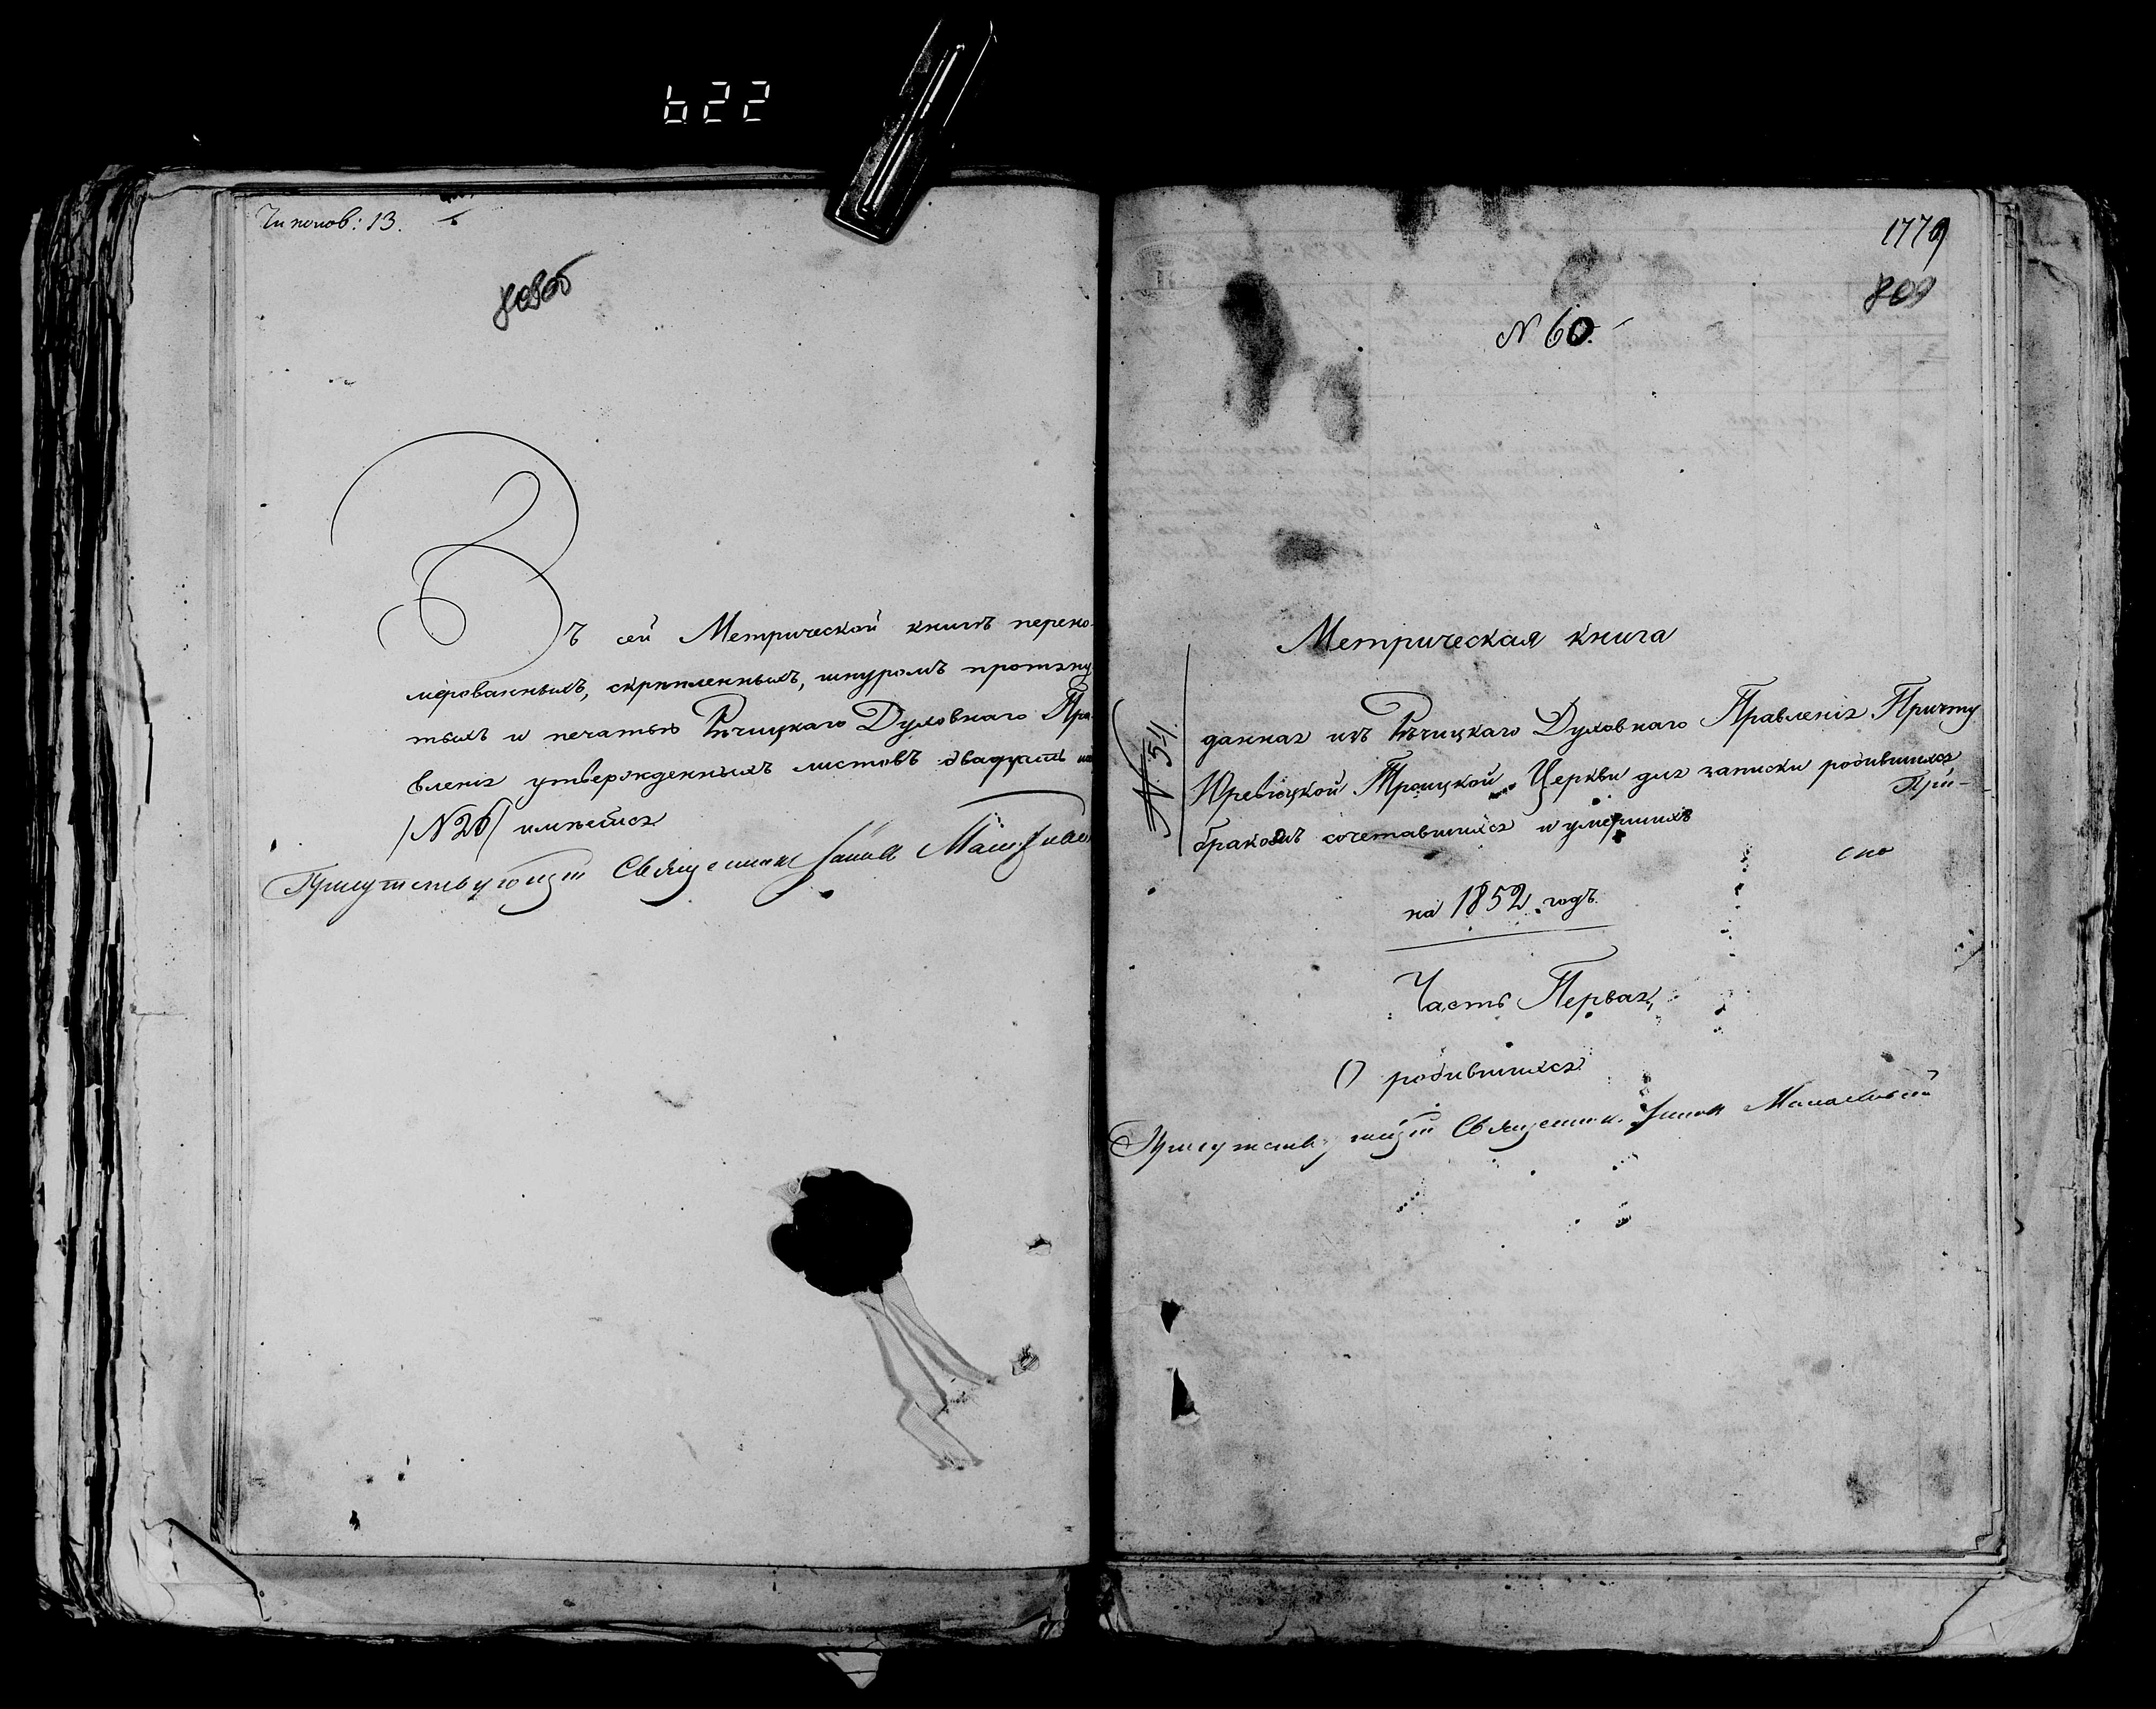 622
808об
Въ сей Метрической книгѣ перено-
мерованныхъ, скрѣпленныхъ, шнуромъ протяну
тыхъ и печатью Рѣчицкаго Духовнаго Пра-
вленія утвержденныхъ листовъ двадцать
/N26/ имѣется
Присутствующій Священник
1779
809
N 60.
Метрическая книга
N. 51.
данная изъ Рѣчицкаго Духовнаго Правленія Причту
Юревицкой Троицкой Церкви для записки родившихся
При-
бракомъ сочетавшихся и умершихъ
на 1852 годъ.
Часть Первая,
О родившихся
Присутствующій Священник.